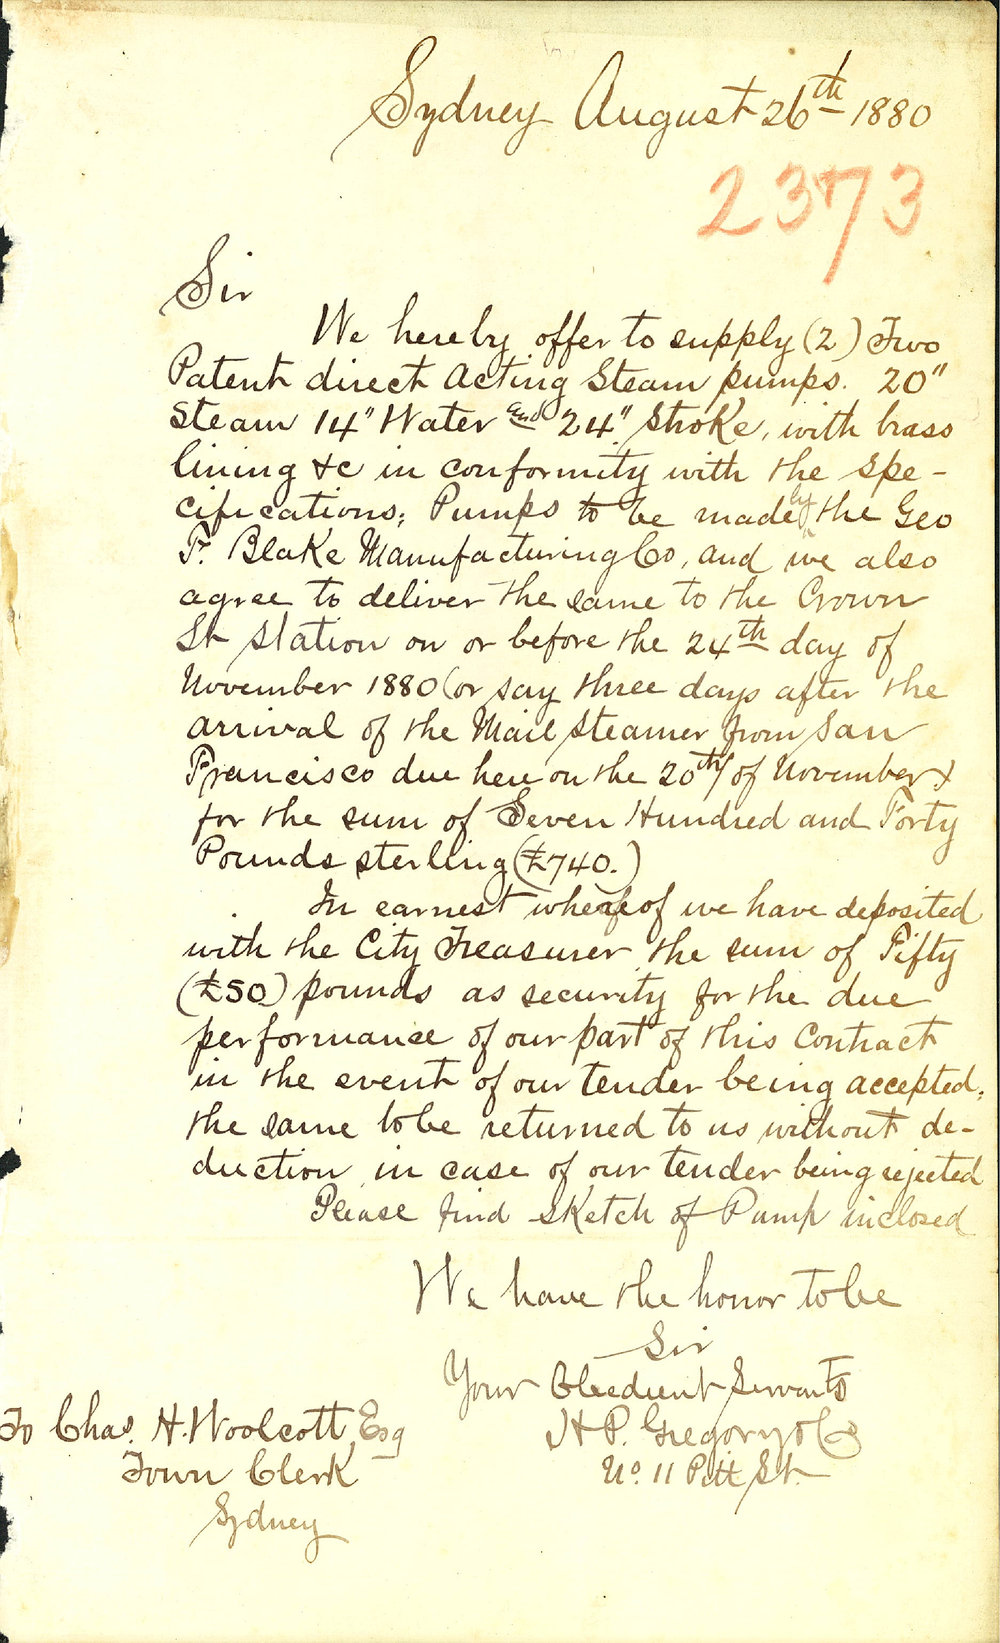 Sydney August 26th 1880
2373
Sir
We hereby offer to supply (2) Two
Patent direct Acting Steam pumps. 20"
Steam 14" Water End 24" Stroke, with brass
lining &c in conformity with the spe-
cifications; Pumps to be made by the Geo
F. Blake Manufacturing Co, and we also
agree to deliver the same to the Crown
St Station on or before the 24th day of
November 1880 (or say three days after the
arrival of the Mail Steamer from San
Francisco due here on the 20th/of November)
for the sum of Seven Hundred and Forty
Pounds sterling (£740.)
In earnest whereof we have deposited
with the City Treasurer the sum of Fifty
(£50) pounds as security for the due
performance of our part of this Contract
in the event of our tender being accepted;
the same to be returned to us without de-
duction in case of our tender being rejected
Please find sketch of Pump inclosed
We have the honor to be
Sir
Your Obedient Servants
H P. Gregory & Co
No. 11 Pitt St.
To Chas. H. Woolcott, Esq
Town Clerk
Sydney